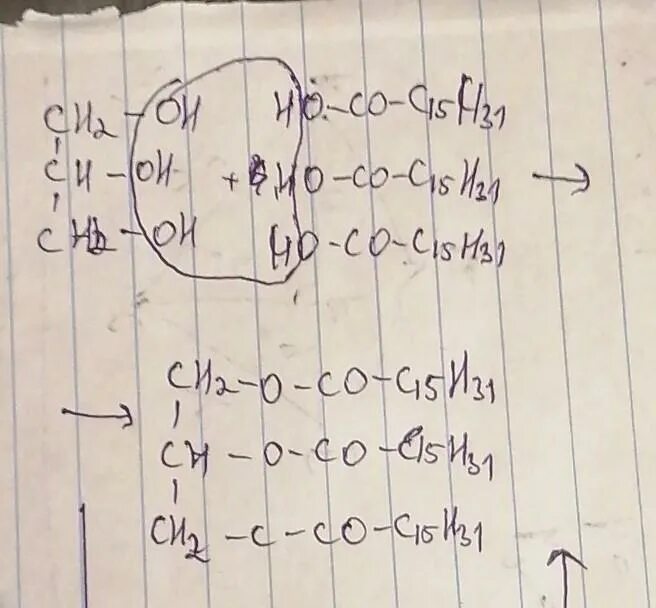 CH2 - OH HO - CO - C15H31
CH - OH + HO - CO - C15H31 →
CH2 - OH HO - CO - C15H31
→ CH2 - O - CO - C15H31
CH - O - CO - C15H31
CH2 - C - CO - C15H31